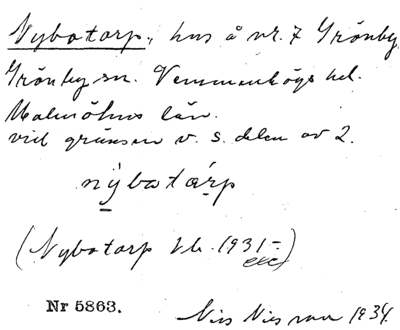 Nybotorp, hus å nr. 7 Grönby,
Grönby sn. Vemmenhögs hd.
Malmöhus län.
vid gränsen v. s. delen av 2.
nỳbotårp
(Nybotorp Jb. 1931-)
Nr 5863.
Nils Nilsson 1934.